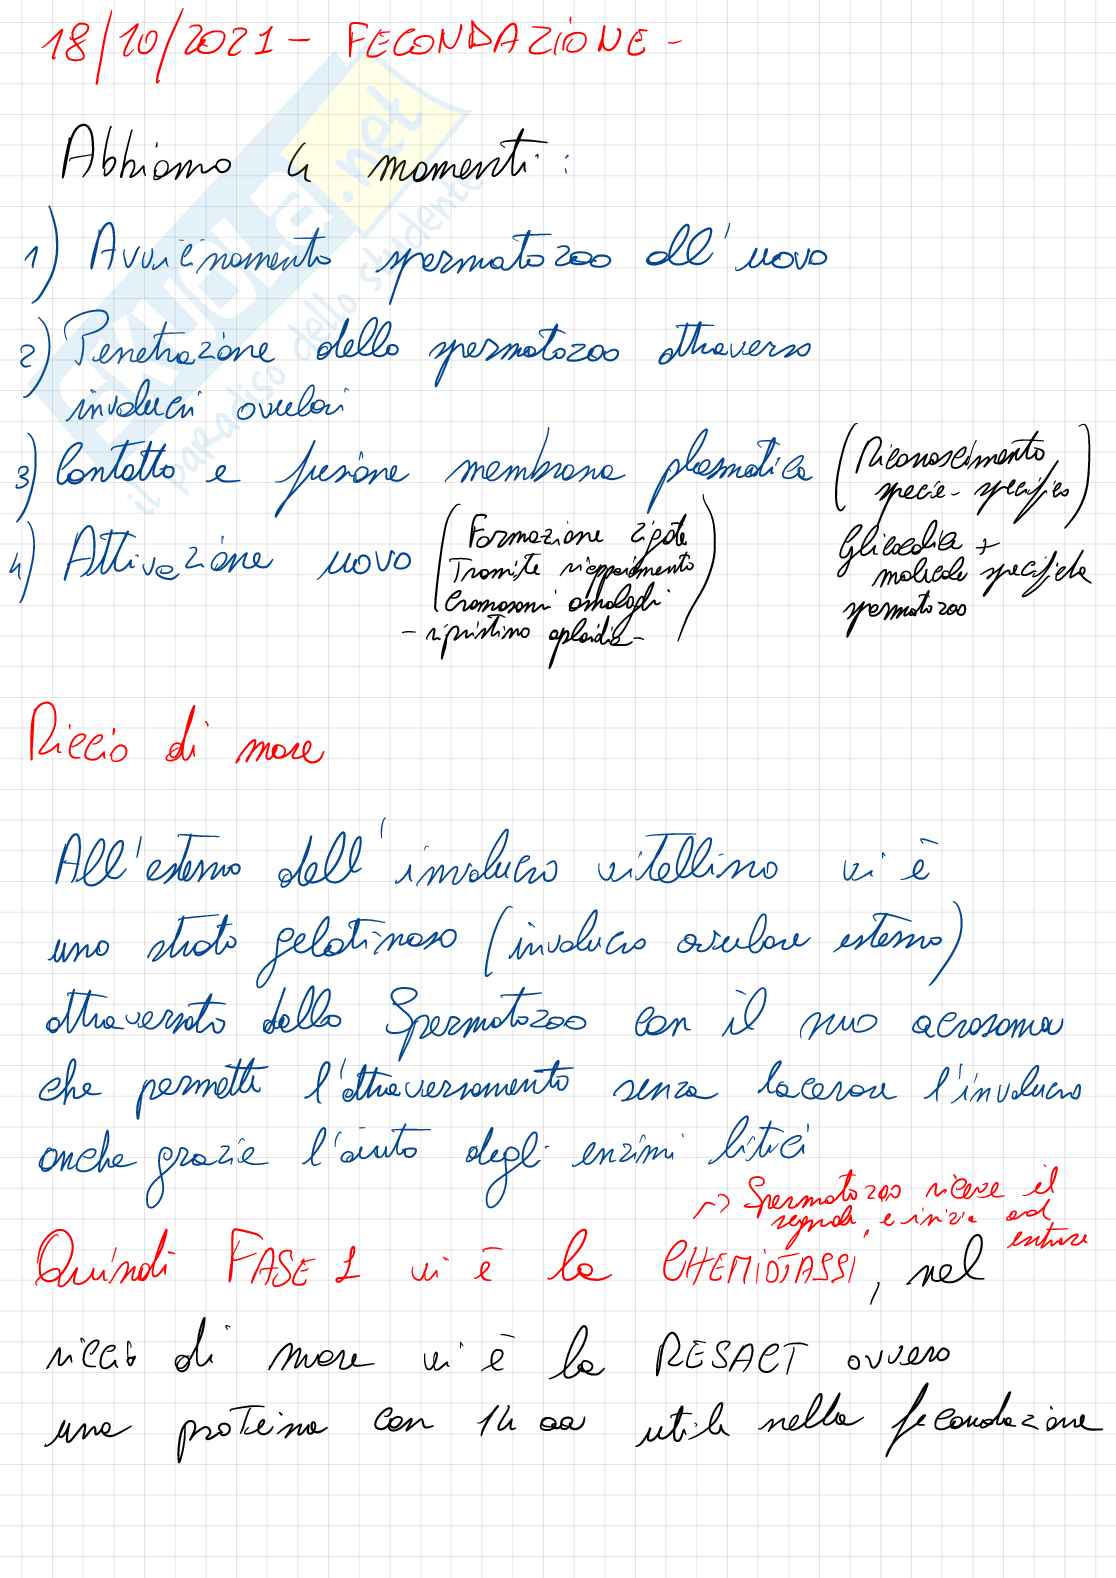 18/10/2021 - FECONDAZIONE -
Abbiamo 4 momenti:
1) Avvicinamento spermatozoo all'uovo
2) Penetrazione dello spermatozoo attraverso
involucri ovulari
3) Contatto e fusione membrana plasmatica (Riconoscimento
specie-specifico)
Glicocalice +
molecole specifiche
spermatozoo
4) Attivazione uovo (Formazione zigote
Tramite riappaiamento
Cromosomi omologhi
- ripristino aploidia -)
Riccio di mare
All'esterno dell'involucro vitellino vi è
uno strato gelatinoso (involucro ovulare esterno)
attraversato dallo Spermatozoo con il suo acrosoma
che permette l'attraversamento senza lacerare l'involucro
anche grazie l'aiuto degli enzimi litici
-> Spermatozoo riceve il
segnale, e inizia ad
entrare
Quindi FASE 1 vi è la CHEMIOTASSI, nel
riccio di mare vi è la RESACT ovvero
una proteina con 14 aa utile nella fecondazione
SKUOLA.net
il paradiso dello studente